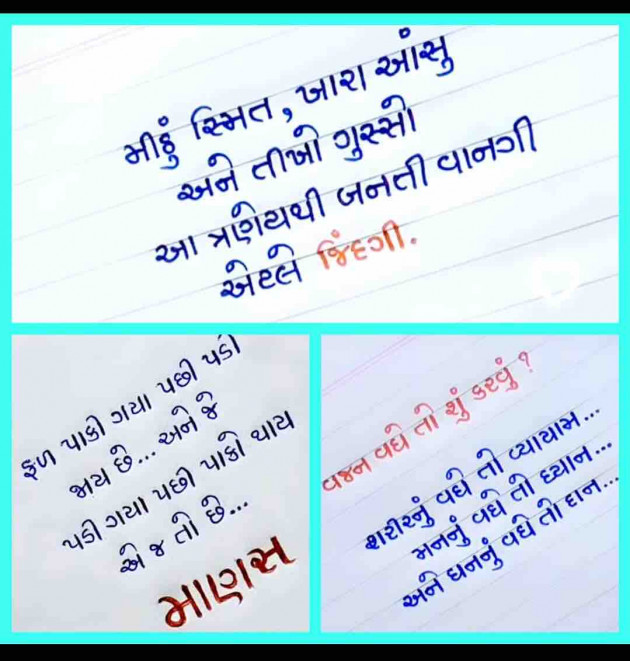 મીઠું સ્મિત, ખારા આંસુ
અને તીખો ગુસ્સો
આ ત્રણેયથી બનતી વાનગી
એટલે જિંદગી.
ફળ પાકી ગયા પછી પડી
જાય છે... અને જે
પડી ગયા પછી પાકો થાય
એ જ તો છે...
માણસ
વજન વધે તો શું કરવું?
શરીરનું વધે તો વ્યાયામ...
મનનું વધે તો ધ્યાન...
અને ધનનું વધે તો દાન...